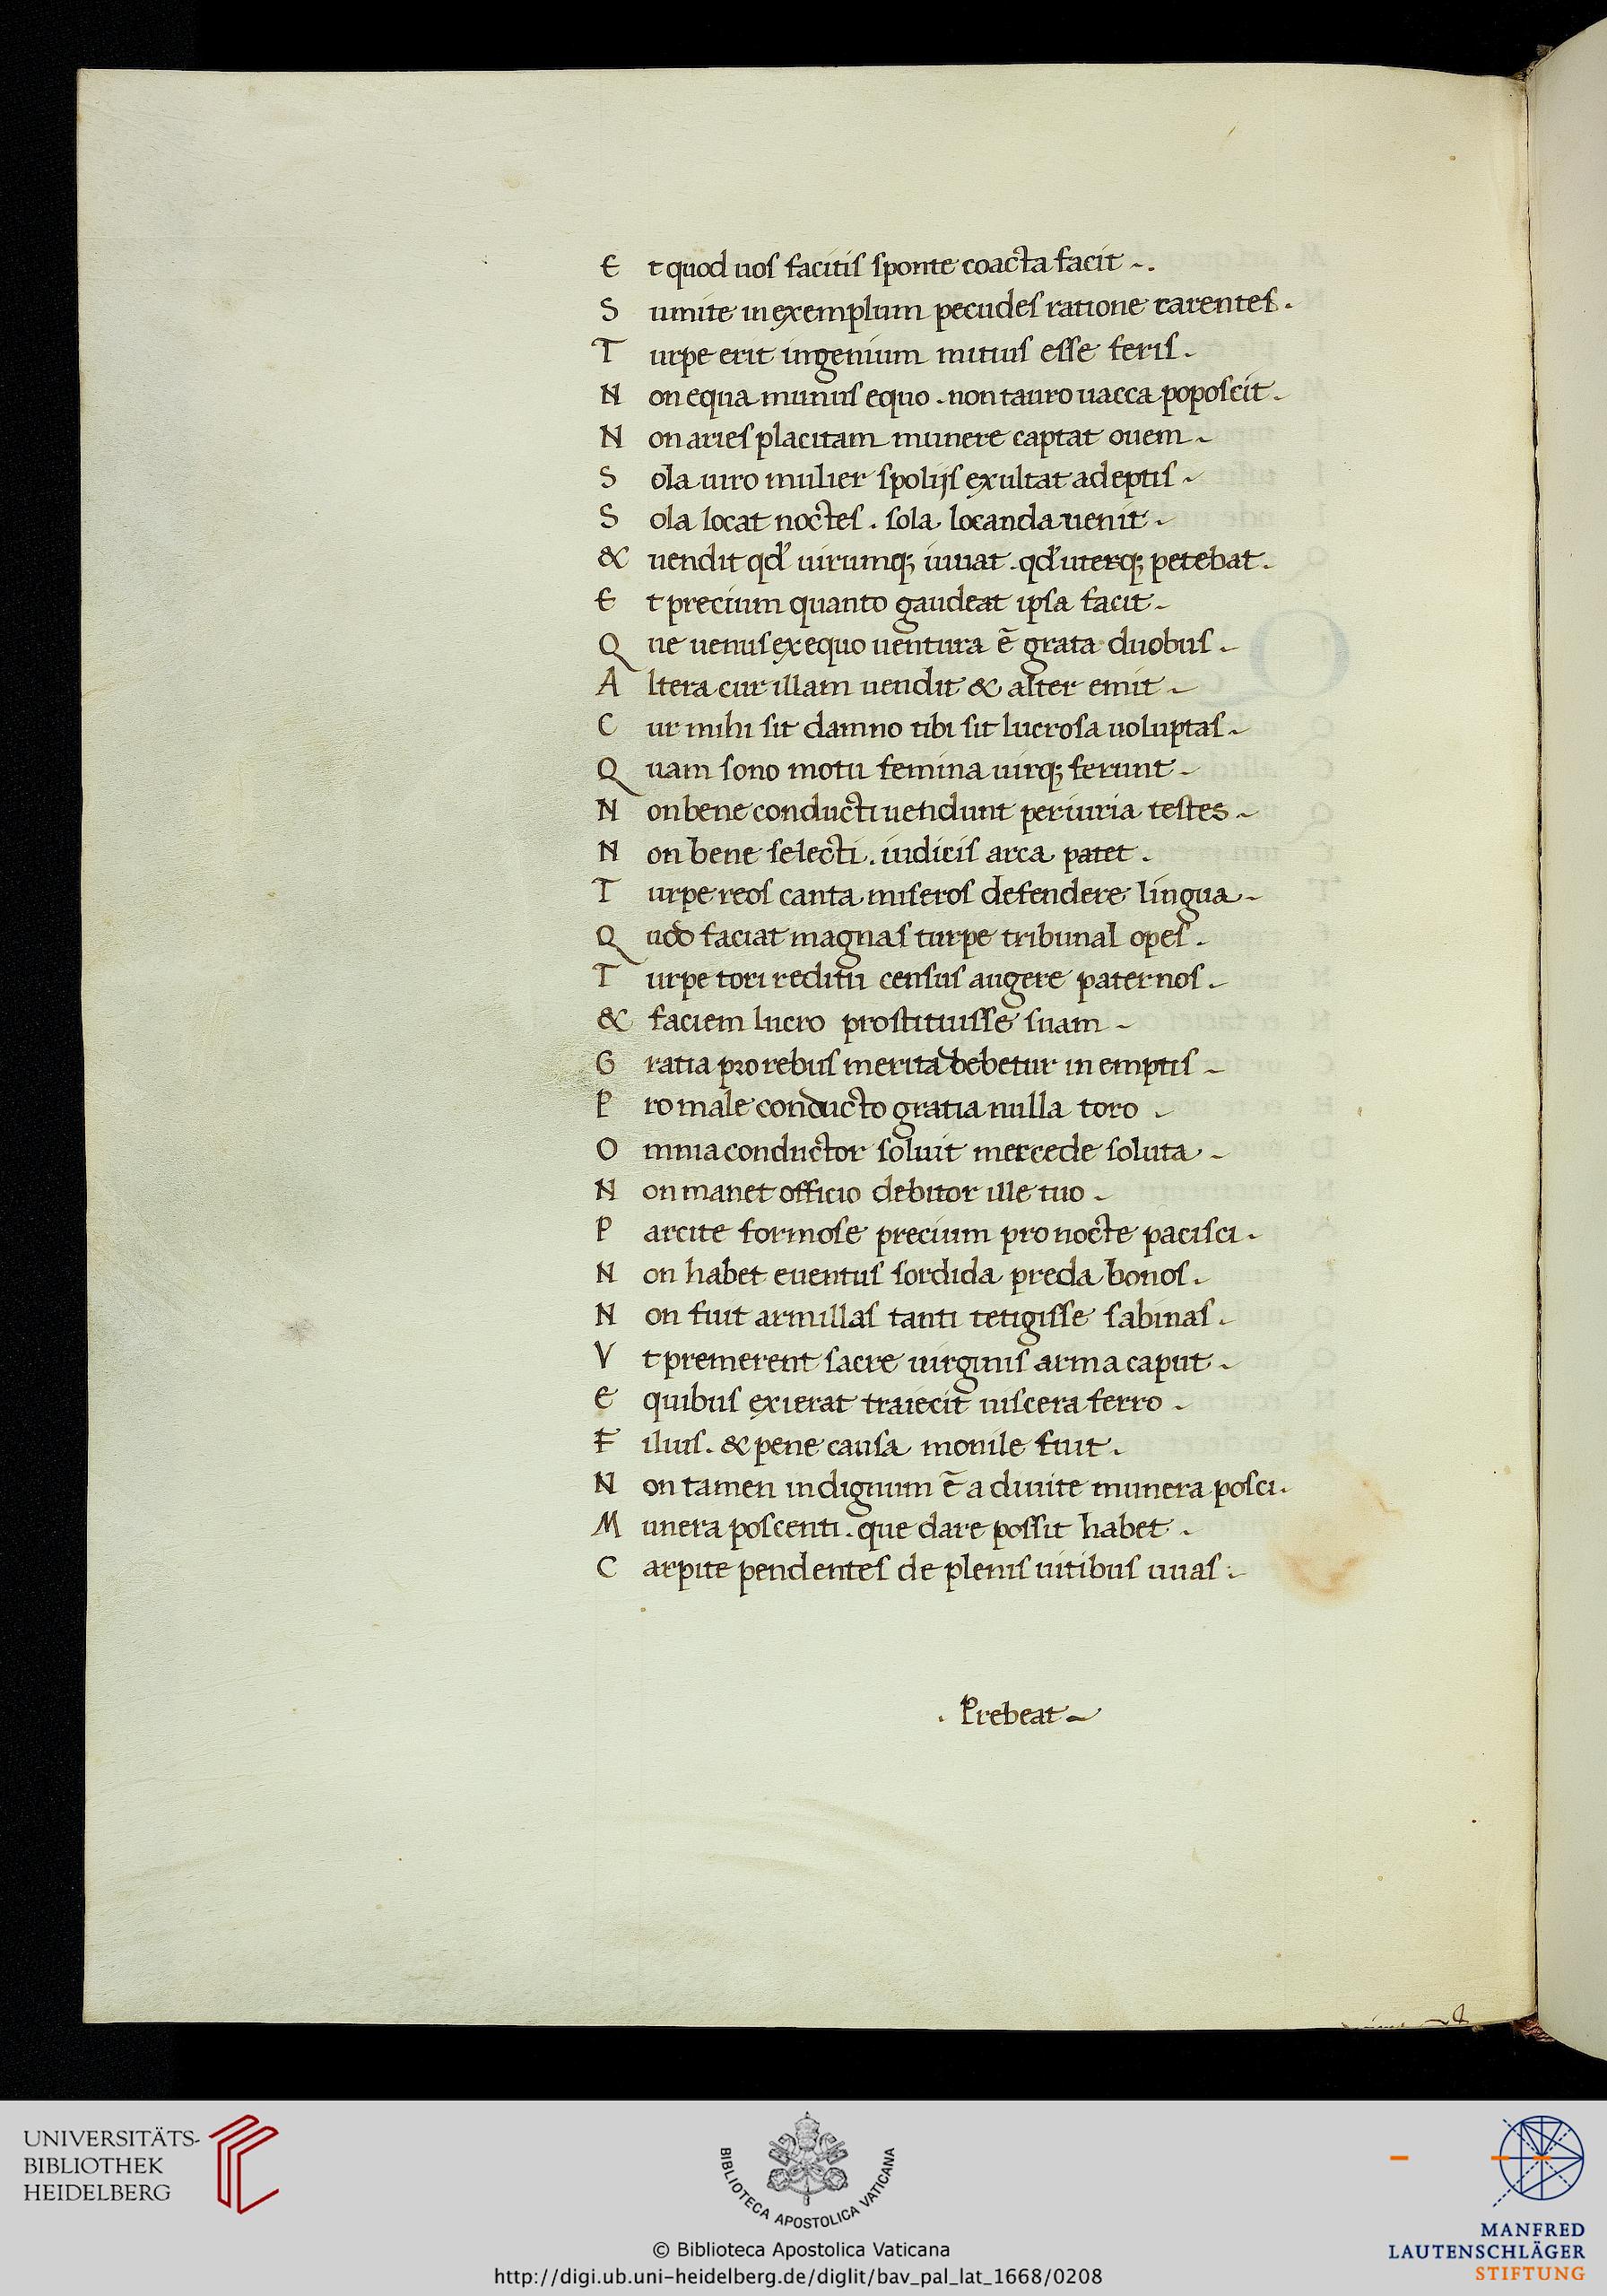 Et quod uos facitis sponte coacta facit
Sumite in exemplum pecudes ratione carentes.
Turpe erit ingenium mitius esse feris.
Non equa munus equo. non tauro uacca poposcit.
Non aries placitam munere captat ouem
Sola uiro mulier spolijs exultat adeptis
Sola locat noctes. sola locanda uenit.
& uendit qd' uirumq; iuuat. qd' uterq; petebat.
Et precium quanto gaudeat ipsa facit
Que uenus ex equo uentura ē grata duobus.
Altera cur illam uendit & alter emit
Cur mihi sit damno tibi sit lucrosa uoluptas
Quam sono motu femina uirq; ferunt
Non bene conducti uendunt periuria testes
Non bene selecti. iudicis arca patet.
Turpe reos canta miseros defendere lingua
Quod faciat magnas turpe tribunal opes.
Turpe tori reditu census augere paternos.
& faciem lucro prostituisse suam
Gratia pro rebus merita debetur in emptis
Pro male conducto gratia nulla toro
Omnia conductor soluit mercede soluta
Non manet officio debitor ille tuo
Parcite formose precium pro nocte pacisci.
Non habet euentus sordida preda bonos.
Non fuit armillas tanti tetigisse sabinas.
Vt premerent sacre uirginis arma caput
E quibus exierat traiecit uiscera ferro
Filius. & pene causa monile fuit.
Non tamen indignum ē a diuite munera posci.
Munera poscenti. que dare possit habet.
Carpite pendentes de plenis uitibus uuas
. Prebeat
UNIVERSITÄTS-
BIBLIOTHEK
HEIDELBERG
BIBLIOTECA APOSTOLICA VATICANA
© Biblioteca Apostolica Vaticana
http://digi.ub.uni-heidelberg.de/diglit/bav_pal_lat_1668/0208
MANFRED
LAUTENSCHLÄGER
STIFTUNG